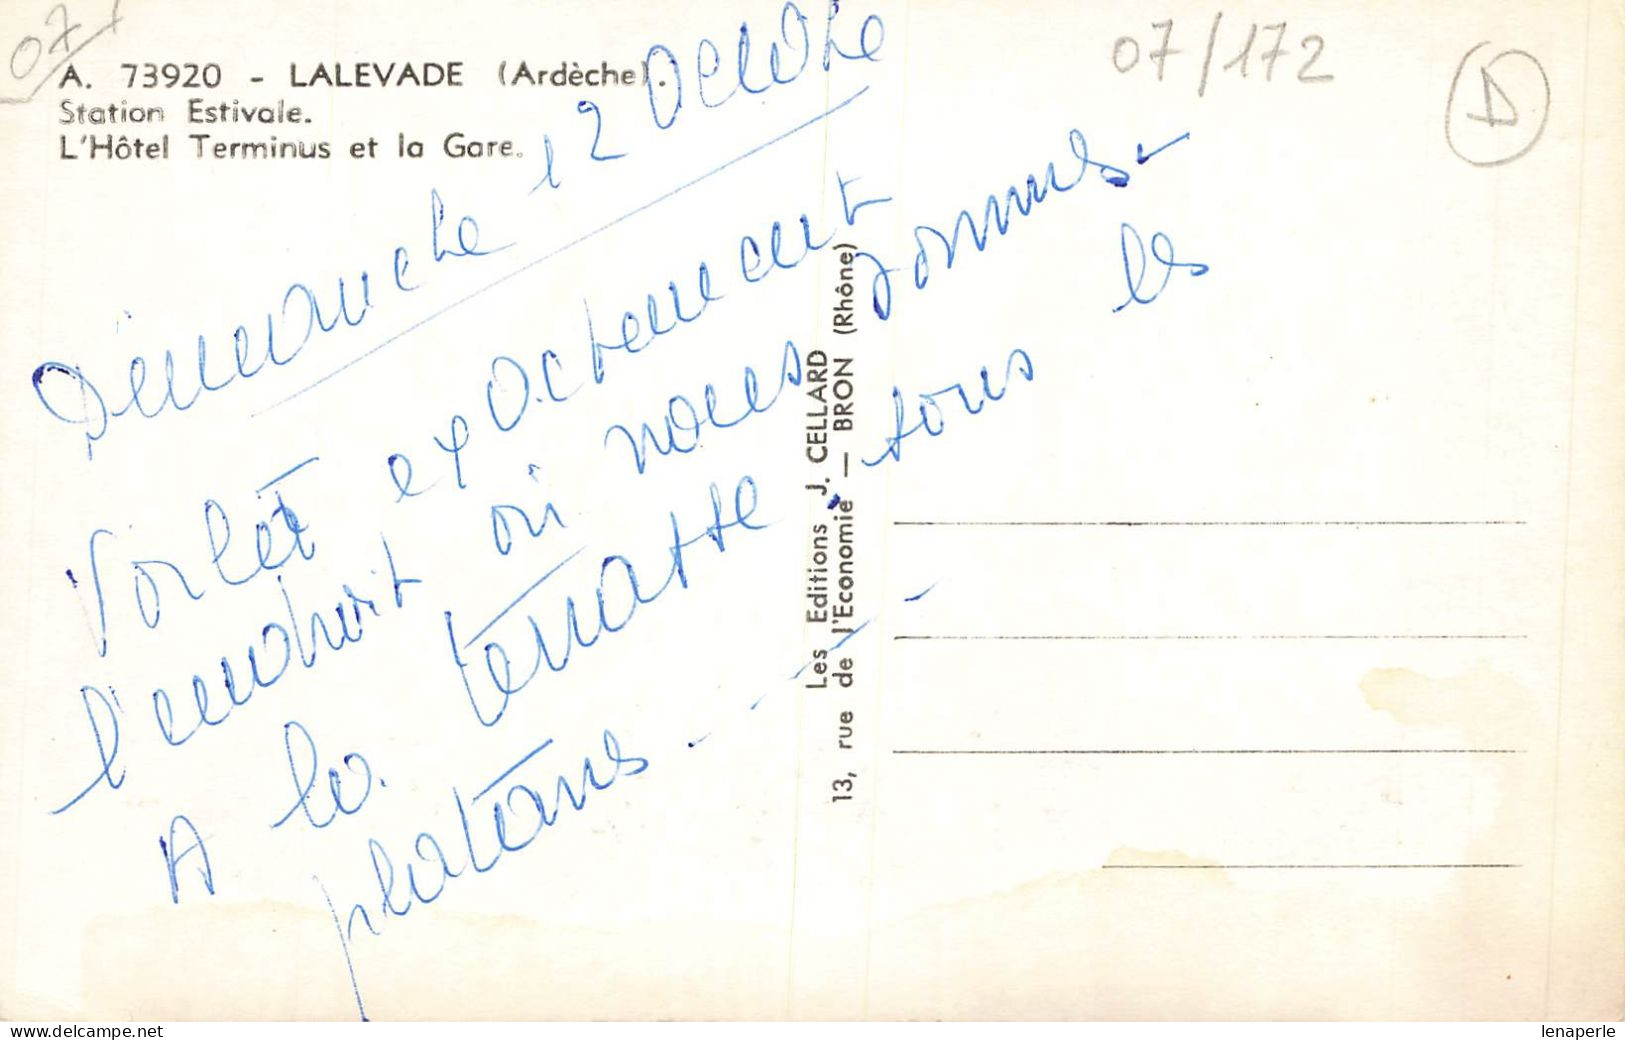 07
07/172
D
A. 73920 - LALEVADE (Ardèche).
Station Estivale.
L'Hôtel Terminus et la Gare.
Dimanche 12 Octobre
Voilà exactement
l'endroit où nous sommes -
A la terrasse, sous les
platanes - - - -
Les Editions J. CELLARD
13, rue de l'Economie — BRON (Rhône)
www.delcampe.net
lenaperle